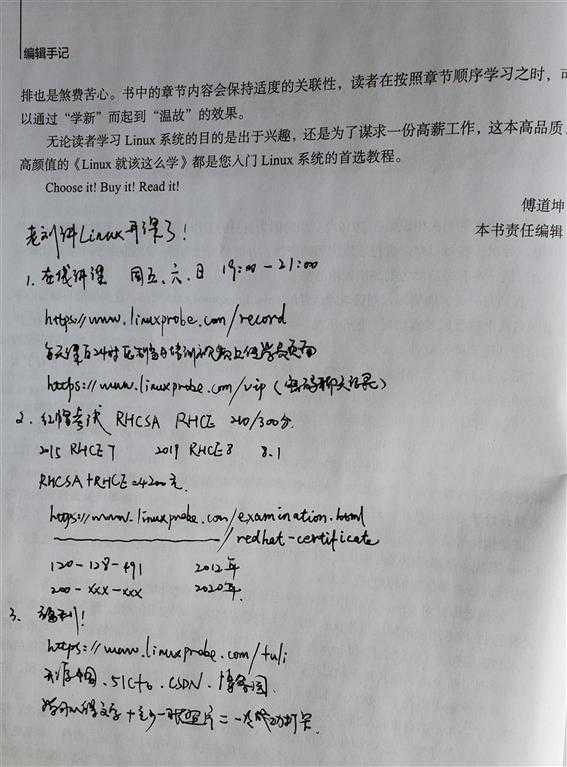 编辑手记
排也是煞费苦心。书中的章节内容会保持适度的关联性，读者在按照章节顺序学习之时，可
以通过“学新”而起到“温故”的效果。
无论读者学习 Linux 系统的目的是出于兴趣，还是为了谋求一份高薪工作，这本高品质、
高颜值的《Linux 就该这么学》都是您入门 Linux 系统的首选教程。
Choose it! Buy it! Read it!
傅道坤
本书责任编辑
老刘讲Linux开课了！
1. 在线讲课 周五、六、日 19:00-21:00
https://www.linuxprobe.com/record
每天课后24时 培训视频上传学员页面
https://www.linuxprobe.com/vip (密码聊天记录)
2. 红帽考试 RHCSA RHCE 210/300分.
2015 RHCE7 2019 RHCE8 8.1
RHCSA+RHCE=4200元.
https://www.linuxprobe.com/examination.html
/redhat-certificate
120-128-491 2012年
200-xxx-xxx 2020年.
3. 福利！
https://www.linuxprobe.com/fuli
开源中国、51CTO、CSDN、博客园.
文字+至少一张照片=一次成功打卡.